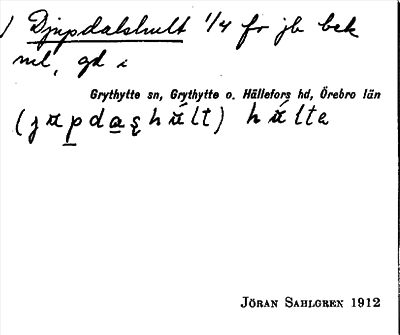 ) Djupdalshult 1/4 fr jb bek
ml, gd i
Grythytte sn, Grythytte o. Hällefors hd, Örebro län
(jupdaʂhúlt) húlta
JÖRAN SAHLGREN 1912